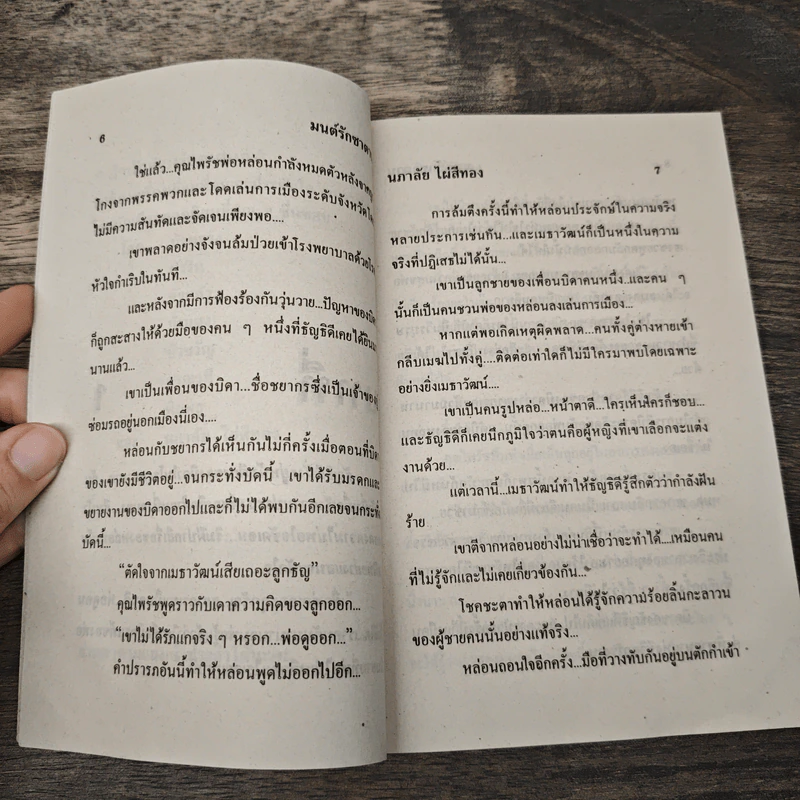 6
มนต์รักซาตาน
ใช่แล้ว...คุณไพรัชพ่อหล่อนกำลังหมดตัวหลังจาก
โกงจากพรรคพวกและโดดเล่นการเมืองระดับจังหวัด
ไม่มีความสันทัดและจัดเจนเพียงพอ....
เขาพลาดอย่างจังจนล้มป่วยเข้าโรงพยาบาลด้วย
หัวใจกำเริบในทันที...
และหลังจากมีการฟ้องร้องกันวุ่นวาย...ปัญหาของบิดา
ก็ถูกสะสางให้ด้วยมือของคน ๆ หนึ่งที่ธัญธิดีเคยได้ยิน
นานแล้ว...
เขาเป็นเพื่อนของบิดา...ชื่อชยากรซึ่งเป็นเจ้าของ
ซ่อมรถอยู่นอกเมืองนี่เอง....
หล่อนกับชยากรได้เห็นกันไม่กี่ครั้งเมื่อตอนที่บิดา
ของเขายังมีชีวิตอยู่...จนกระทั่งบัดนี้ เขาได้รับมรดกและ
ขยายงานของบิดาออกไปและก็ไม่ได้พบกันอีกเลยจนกระทั่ง
บัดนี้...
“ตัดใจจากเมธาวัฒน์เสียเถอะลูกธัญ”
คุณไพรัชพูดราวกับเดาความคิดของลูกออก...
“เขาไม่ได้รักแกจริง ๆ หรอก...พ่อดูออก...”
คำปรารภอันนี้ทำให้หล่อนพูดไม่ออกไปอีก...
นภาลัย ไผ่สีทอง
7
การล้มตึงครั้งนี้ทำให้หล่อนประจักษ์ในความจริง
หลายประการเช่นกัน...และเมธาวัฒน์ก็เป็นหนึ่งในความ
จริงที่ปฏิเสธไม่ได้นั้น...
เขาเป็นลูกชายของเพื่อนบิดาคนหนึ่ง..และคน ๆ
นั้นก็เป็นคนชวนพ่อของหล่อนลงเล่นการเมือง...
หากแต่พอเกิดเหตุผิดพลาด...คนทั้งคู่ต่างหายเข้า
กลีบเมฆไปทั้งคู่....ติดต่อเท่าใดก็ไม่มีใครมาพบโดยเฉพาะ
อย่างยิ่งเมธาวัฒน์....
เขาเป็นคนรูปหล่อ...หน้าตาดี...ใครเห็นใครก็ชอบ...
และธัญธิดีก็เคยนึกภูมิใจว่าตนคือผู้หญิงที่เขาเลือกจะแต่ง
งานด้วย...
แต่เวลานี้...เมธาวัฒน์ทำให้ธัญธิดีรู้สึกตัวว่ากำลังฝัน
ร้าย
เขาตีจากหล่อนอย่างไม่น่าเชื่อว่าจะทำได้....เหมือนคน
ที่ไม่รู้จักและไม่เคยเกี่ยวข้องกัน...
โชคชะตาทำให้หล่อนได้รู้จักความร้อยลิ้นกะลาวน
ของผู้ชายคนนั้นอย่างแท้จริง...
หล่อนถอนใจอีกครั้ง...มือที่วางทับกันอยู่บนตักกำเข้า